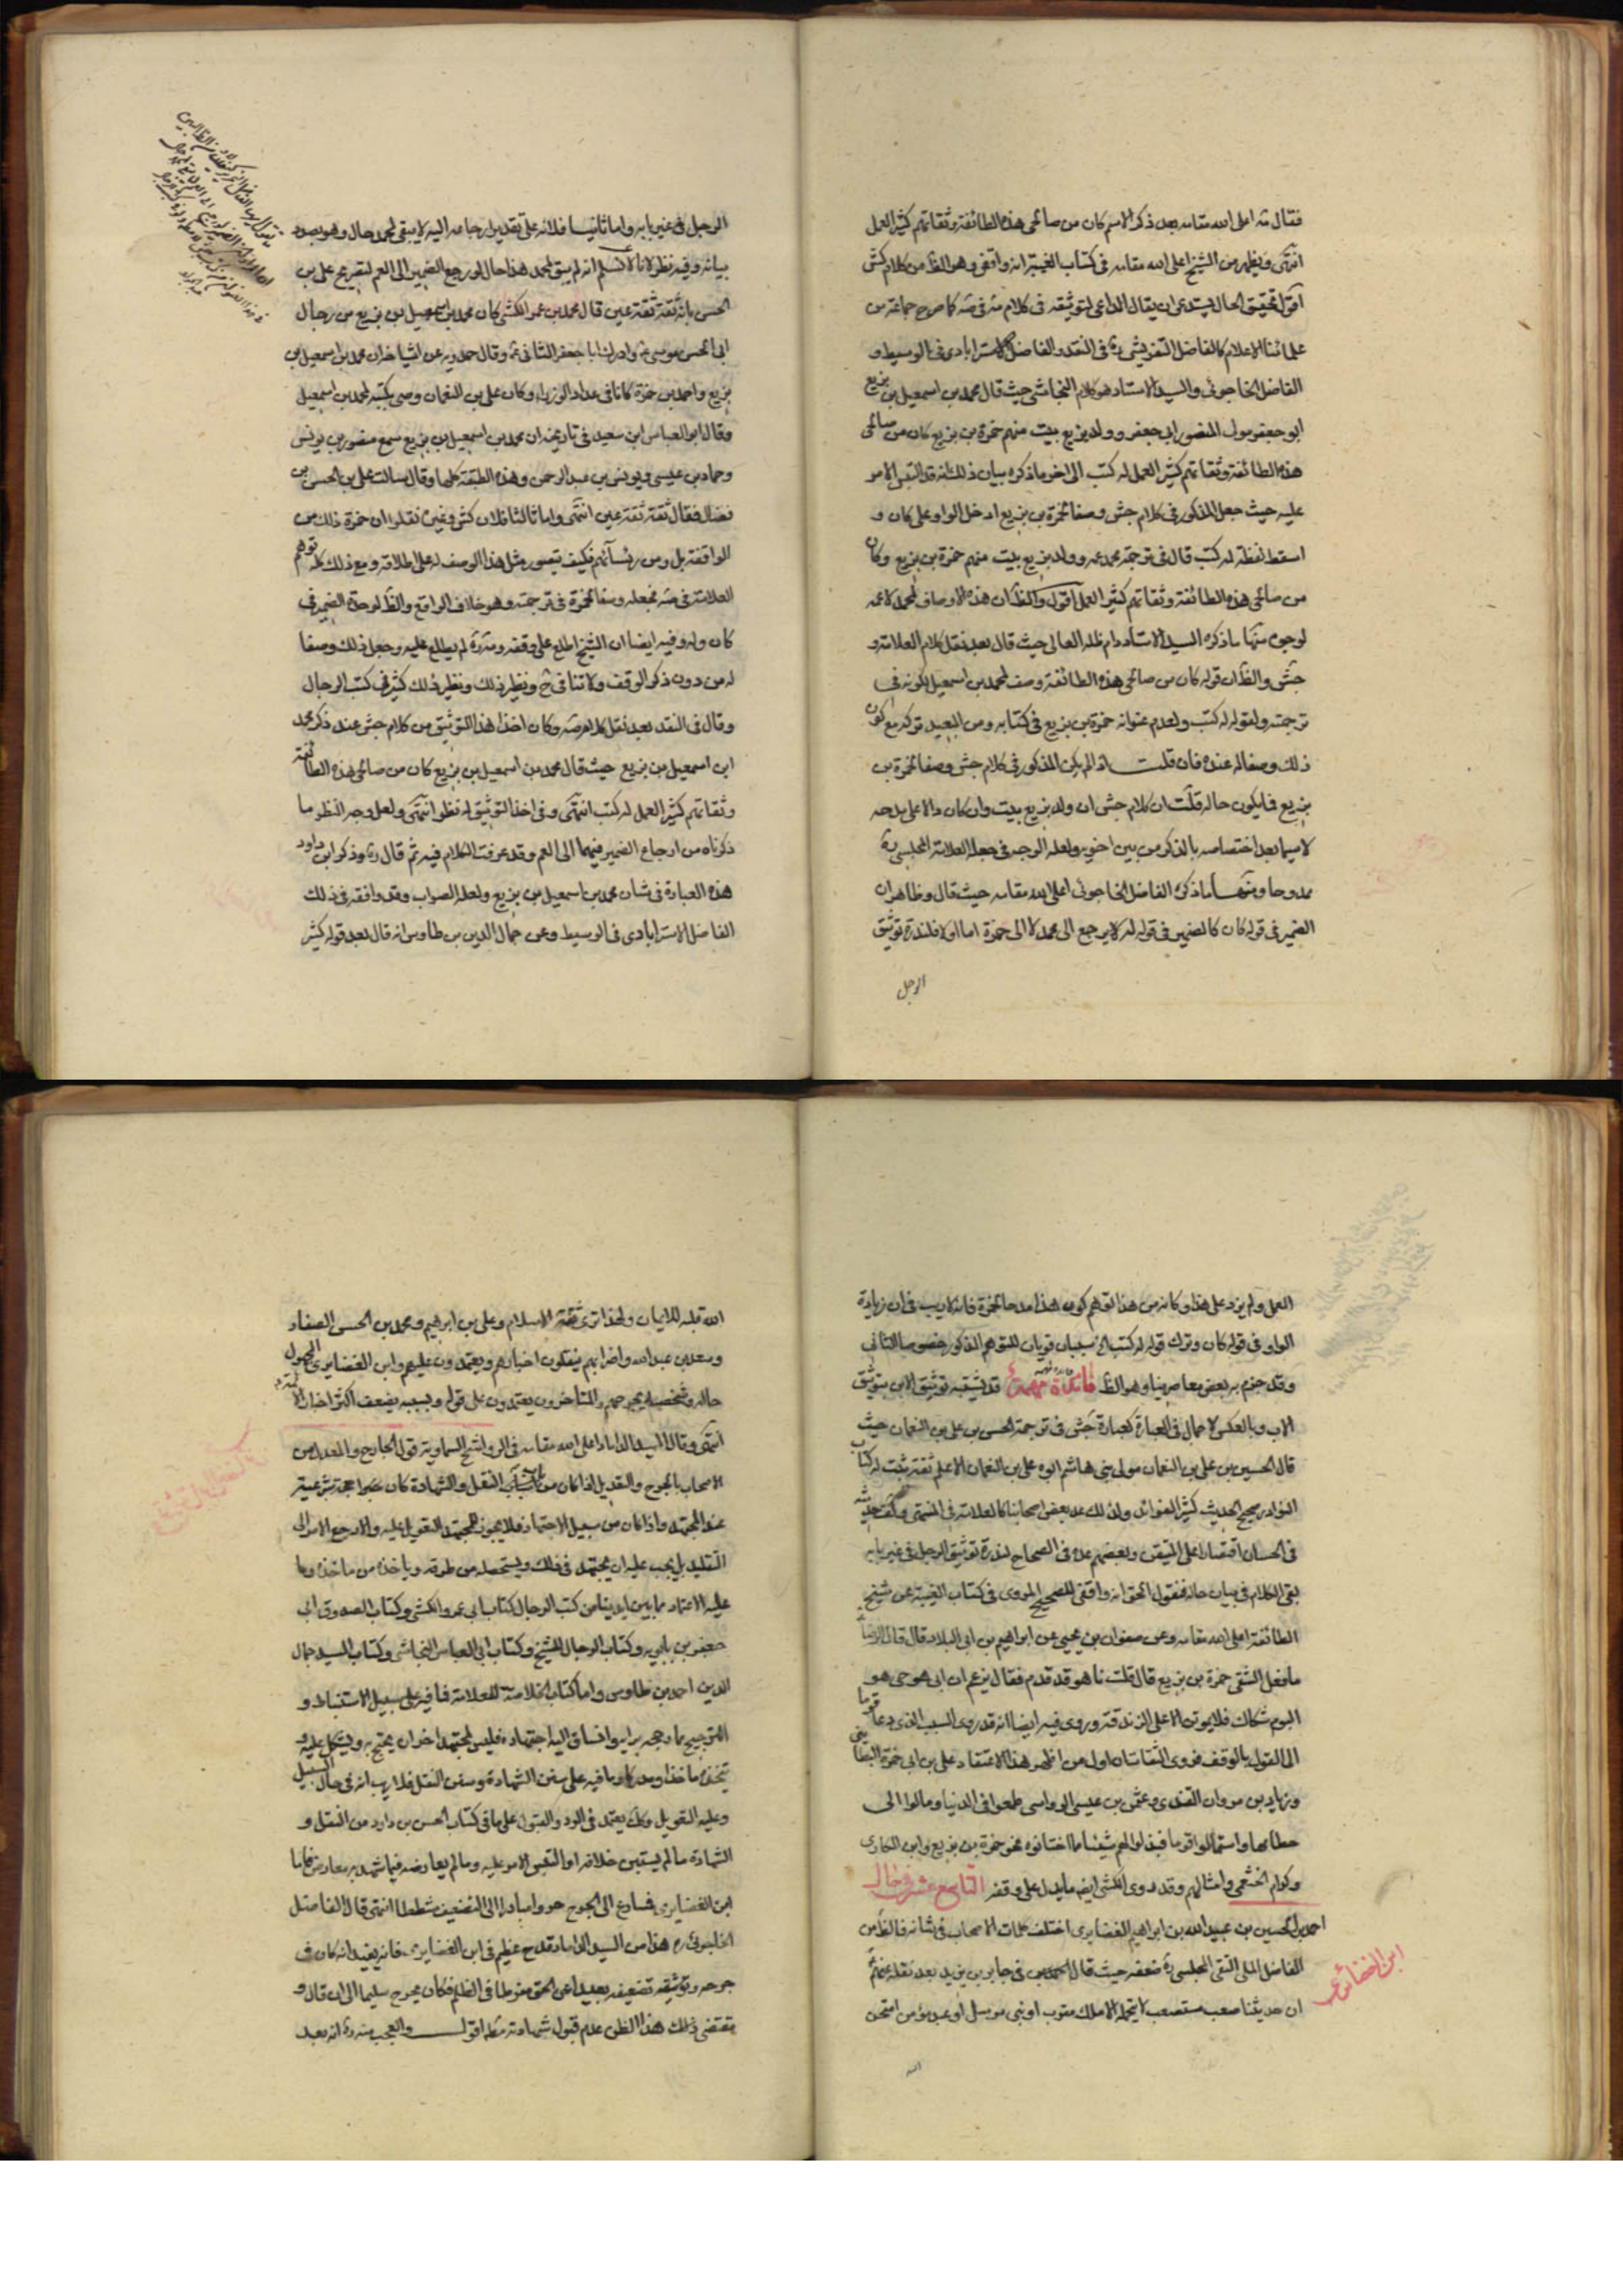 فقال مة اعلى الله مقامه بعد ذكر الاسم كان من صالحى هذه الطائفة وثقاتهم كثير العمل
انتهى ويظهر من الشيخ اعلى الله مقامه فى كتاب الغيبة انه واقفى وهو الظ من كلام كش
اقول تحقيق الحال يستدعى ان يقال الداعى لتوثيقه فى كلام مة فى صه كما صرح جماعة من
علمائنا الاعلام كالفاضل التفريشى ره فى النقد والفاضل الاسترابادى فى الوسيط و
الفاضل الخاجوئى والسيد الاستاد هو كلام النجاشى حيث قال محمد بن اسمعيل بن بزيع
ابو جعفر مولى المنصور ابى جعفر وولد بزيع بيت منهم حمزة بن بزيع كان من صالحى
هذه الطائفة وثقاتهم كثير العمل له كتب الى اخر ما ذكره بيان ذلك انه قد التبس الامر
عليه حيث جعل المذكور فى كلام جش وصفا لحمزة بن بزيع ادخل الواو على كان و
اسقط لفظة له كتب قال فى ترجمة محمد عمه وولد بزيع بيت منهم حمزة بن بزيع وكان
من صالحى هذه الطائفة وثقاتهم كثير العمل اقول والظ ان هذه الاوصاف لمحمد لا عمه
لوجوه منها ما ذكره السيد الاستاد دام ظله العالى حيث قال بعد نقل كلام العلامة و
جش والظ ان قوله كان من صالحى هذه الطائفة وصف لمحمد بن اسمعيل لكونه فى
ترجمته ولقوله له كتب ولعدم عنوانه حمزة بن بزيع فى كتابه ومن البعيد تركه مع كون
ذلك وصفا له عنده فان قلت اذا لم يكن المذكور فى كلام جش وصفا لحمزة بن
بزيع فما يكون حاله قلت ان كلام جش ان ولد بزيع بيت وان كان دالا على مدحه
لا سيما بعد اختصاصه بالذكر من بين اخوته ولعله الوجه فى جعله العلامة المجلسى ره
ممدوحا ومنها ما ذكره الفاضل الخاجوئى اعلى الله مقامه حيث قال وظاهر ان
الضمير فى قوله كان كالضمير فى قوله له لا يرجع الى محمد لا الى حمزة اما اولا فلندرة توثيق
الرجل
الرجل فى غير بابه واما ثانيا فلانه على تقدير ارجاعه اليه لا يبقى لمحمد حال وهو بصدد
بيانه وفيه نظر لانا لا نسلم انه لم يبق لمحمد هذا حال لو رجع الضمير الى العم لتصريح على بن
الحسن بانه ثقة ثقة عين قال محمد بن عمر الكشى كان محمد بن اسمعيل بن بزيع من رجال
ابى الحسن موسى ع وادرك ابا جعفر الثانى ع وقال حمدويه عن اشياخه ان محمد بن اسمعيل بن
بزيع واحمد بن حمزة كانا فى عداد الوزراء وكان على بن النعمان وصى بكتبه لمحمد بن اسمعيل
وقال ابو العباس ابن سعيد فى تاريخه ان محمد بن اسمعيل بن بزيع سمع منصور بن يونس
وحماد بن عيسى ويونس بن عبد الرحمن وهذه الطبقة كلها وقال سالت على بن الحسن بن
فضال فقال ثقة ثقة عين انتهى واما ثالثا فلان كش وغيره نقلوا ان حمزة ذلك من
الواقفة بل ومن رؤسائهم فكيف يتصور مثل هذا الوصف له على اطلاقه ومع ذلك كله توهم
العلامة فى صه فجعله وصفا لحمزة فى ترجمته وهو خلاف الواقع والظ لوحدة الضمير فى
كان وله وفيه ايضا ان الشيخ اطلع على وقفه ومة ره لم يطلع عليه وجعل ذلك وصفا
له من دون ذكر الوقف ولا تنافى ح ونظير ذلك ونظير ذلك كثير فى كتب الرجال
وقال فى النقد بعد نقل كلام صه وكان اخذ هذا التوثيق من كلام جش عند ذكر محمد
ابن اسمعيل بن بزيع حيث قال محمد بن اسمعيل بن بزيع كان من صالحى هذه الطائفة
وثقاتهم كثير العمل له كتب انتهى وفى اخذ التوثيق له نظر انتهى ولعل وجه النظر ما
ذكرناه من ارجاع الضمير فيهما الى العم وقد عرفت الكلام فيه ثم قال ره وذكر ابن داود
هذه العبارة فى شان محمد بن اسمعيل بن بزيع ولعله الصواب وقد وافقه فى ذلك
الفاضل الاسترابادى فى الوسيط وعن جمال الدين بن طاوس انه قال بعد قوله كثير
العمل ولم يزد على هذا وكانه من هذا توهم كون هذا مدحا لحمزة فانه لا ريب فى ان زيادة
الواو فى قوله كان وترك قوله له كتب الخ سببان قويان للتوهم المذكور خصوصا الثانى
وقد جزم به بعض معاصرينا وهو الظ فائدة مهمة قد يشتبه توثيق الابن بتوثيق
الاب وبالعكس لاجمال فى العبارة كعبارة جش فى ترجمة الحسن بن على بن النعمان حيث
قال الحسين بن على بن النعمان مولى بنى هاشم ابوه على بن النعمان الاعلم ثقة ثبت له كتاب
النوادر صحيح الحديث كثير الفوائد ولذلك عد بعض اصحابنا كالعلامة فى المنتهى وكف حديثه
فى الحسان اقتصارا على المتيقن وبعضهم عده فى الصحاح لندرة توثيق الرجل فى غير بابه
بقى الكلام فى بيان حاله فنقول الحق انه واقفى للصحيح المروى فى كتاب الغيبة عن شيخ
الطائفة اعلى الله مقامه وعن صفوان بن يحيى عن ابراهيم بن ابى البلاد قال قال الرضا ع
ما فعل الشقى حمزة بن بزيع قال قلت ها هو قد قدم فقال يزعم ان ابى هو حى هو
اليوم شكاك فلا يموتن الا على الزندقة وروى فيه ايضا انه قد روى السبب الذى دعا قوما
الى القول بالوقف فروى الثقات ان اول من اظهر هذا الاعتقاد على بن ابى حمزة البطائنى
وزياد بن مروان القندى وعثمن بن عيسى الرواسى طمعوا فى الدنيا ومالوا الى
حطامها واستمالوا قوما فبذلوا لهم شيئا مما اختانوه نحو حمزة بن بزيع وابن المكارى
وكرام الخثعمى وامثالهم وقد روى الكشى ايضا ما يدل على وقفه التاسع عشر فى حال
احمد بن الحسين بن عبيد الله بن ابراهيم الغضايرى اختلف كلمات الاصحاب فى شانه فالظ من
الفاضل الملى التقى المجلسى ره ضعفه حيث قال احمد بن فى جابر بن يزيد بعد نقله عنهم
ان حديثنا صعب مستصعب لا يتحمله الا ملك مقرب او نبى مرسل او عبد مؤمن امتحن
ابن الغضائرى
الله
الله قلبه للايمان ولهذا ترى ثقة الاسلام وعلى بن ابرهيم ومحمد بن الحسن الصفار
وسعد بن عبد الله واضرابهم ينقلون اخبارهم ويعتمدون عليهم وابن الغضايرى المجهول
حاله وشخصه يجرحهم والمتاخرون يعتمدون على قوله وبسببه يضعف اكثر اخبار الائمة
انتهى وقال السيد الداماد اعلى الله مقامه فى الرواشح السماوية قول الجارح والمعدل من
الاصحاب بالجرح والتعديل اذا كان من باب النقل والشهادة كان حجة شرعية
عند المجتهد واذا كان من سبيل الاجتهاد فلا يجوز للمجتهد التعويل عليه والا رجع الامر الى
التقليد بل يجب عليه ان يجتهد فى ذلك ويستحصله من طرقه وياخذه من ماخذه وما
عليه الاعتماد مما بين ايدينا من كتب الرجال كتاب ابى عمرو الكشى وكتاب الصدوق ابى
جعفر بن بابويه وكتاب الرجال للشيخ وكتاب ابى العباس النجاشى وكتاب السيد جمال
الدين احمد بن طاوس واما كتاب الخلاصة للعلامة فما فيه على سبيل الاستنباط و
الترجيح بما رجحه برايه وانساق اليه اجتهاده فليس لمجتهد اخر ان يحتج به ويتكل عليه و
يتخذه ماخذا ومدركا وما فيه على سنن الشهادة وسنن النقل فلا ريب انه فى حال السبيل
وعليه التعويل وكك يعتمد فى الرد والقبول على ما فى كتاب الحسن بن داود من النقل و
الشهادة ما لم يستبن خلافه او التبس الامر عليه وما لم يعارضه فيما شهد به معارض فاما
ابن الغضايرى فسارع الى الجرح حردا مبادرا الى التضعيف شططا انتهى قال الفاضل
الخاجوئى ره هذا من السيد الداماد قدح عظيم فى ابن الغضايرى فانه يفيد انه كان فى
جرحه وتوثيقه تضعيفه بعيدا عن الحق مفرطا فى الظلم فكان يجرح سليما الى ان قال و
مقتضى ذلك هذا الظن عدم قبول شهادته مطه اقول والعجب منه ره انه بعد